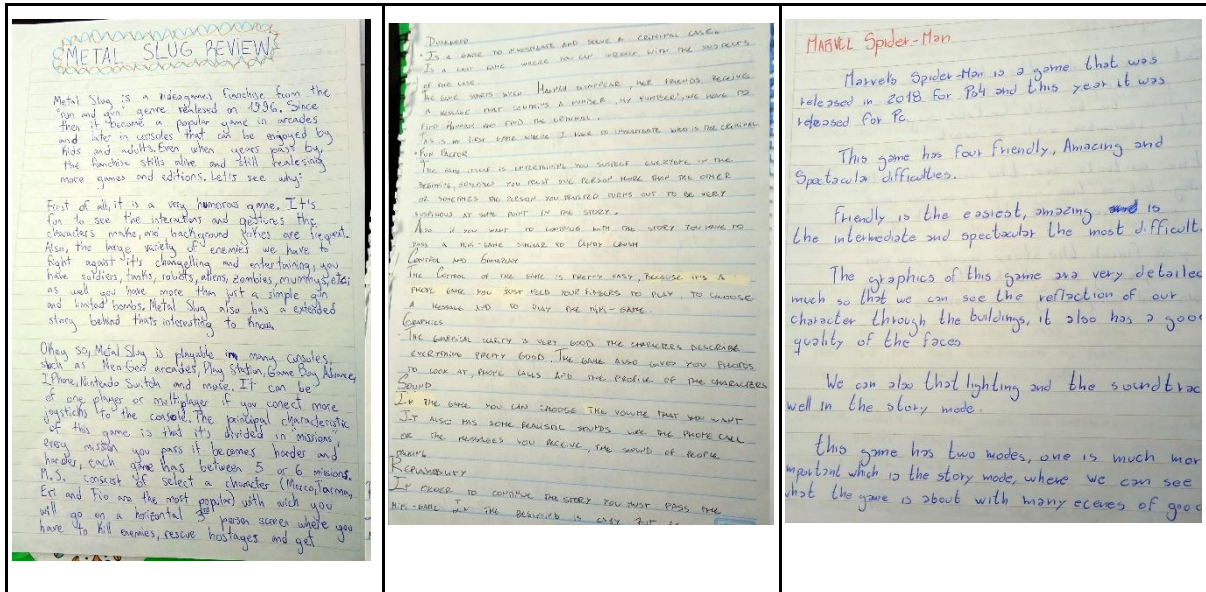 METAL SLUG REVIEW
Metal Slug is a videogames franchise from the
"run and gun" genre realesed on 1996. Since
then it become a popular game in arcades
and later in consoles that can be enjoyed by
kids and adults. Even when years pass by,
the franchise stills alive and still realesing
more games and editions. Let's see why:
First of all, it is a very humorous game. It's
fun to see the interactions and gestures the
characters make, and background jokes are frequent.
Also, the large variety of enemies we have to
fight against it's changelling and entertaining, you
have soldiers, tanks, robots, aliens, zombies, mummys, etc;
as well you have more than just a simple gun
and limited bombs. Metal Slug also has a extended
story behind that's interesting to know.
Okey so, Metal Slug is playable in many consoles,
such as then Geo arcades, Play Station, Game Boy Advance,
IPhone, Nintendo Switch and more. It can be
of one player or multiplayer if you conect more
joysticks to the console. The principal characteristic
of this game is that it's divided in "missions",
every mission you pass it becomes harder and
harder, each game has between 5 or 6 missions.
M.S. consist of select a character (Marco, Tarma,
Eri and Fio are the most popular) with wich you
will go on a horizontal 3rd person screen where you
have to kill enemies, rescue hostages and get
Duskwood
• Is a game to investigate and solve a criminal case.
Is a chat game where you can interact with the suspects
of the case
The game starts when Hannah disappear, her friends receive
a message that contains a number, my number!, we have to
find Hannah and find the criminal.
This is my first game where I have to investigate who is the criminal
• Fun Factor
The game itself is entertaining you suspect everyone in the
beginning, you trust one person more than the other
or sometimes the person you trusted turns out to be very
suspicious at some point in the story.
Also if you want to continue with the story you have to
pass a mini-game similar to Candy Crush
Control and Gameplay
The control of the game is pretty easy, because it's a
phone game you just need your fingers to play, to choose
a message and to play the mini-game.
Graphics
The graphical quality is very good the characters describe
everything pretty good. The game also gives you photos
to look at, phone calls and the profile of the characters
Sound
In the game you can choose the volume that you want
It also has some realistic sounds like the phone call
or the messages you receive, the sound of people
talking
Replayability
In order to continue the story you must pass the
mini-game the beginning is easy but
MARVEL Spider-Man
Marvel's Spider-Man is a game that was
released in 2018 for Ps4 and this year it was
released for Pc.
This game has four Friendly, Amazing and
Spectacular difficulties.
Friendly is the easiest, amazing is
the intermediate and spectacular the most difficult.
The graphics of this game are very detailed
much so that we can see the reflection of our
character through the buildings, it also has a good
quality of the faces
We can also that lighting and the soundtrac
well in the story mode.
this game has two modes, one is much mor
mportant which is the story mode, where we can see
what the game is about with many eceves of good